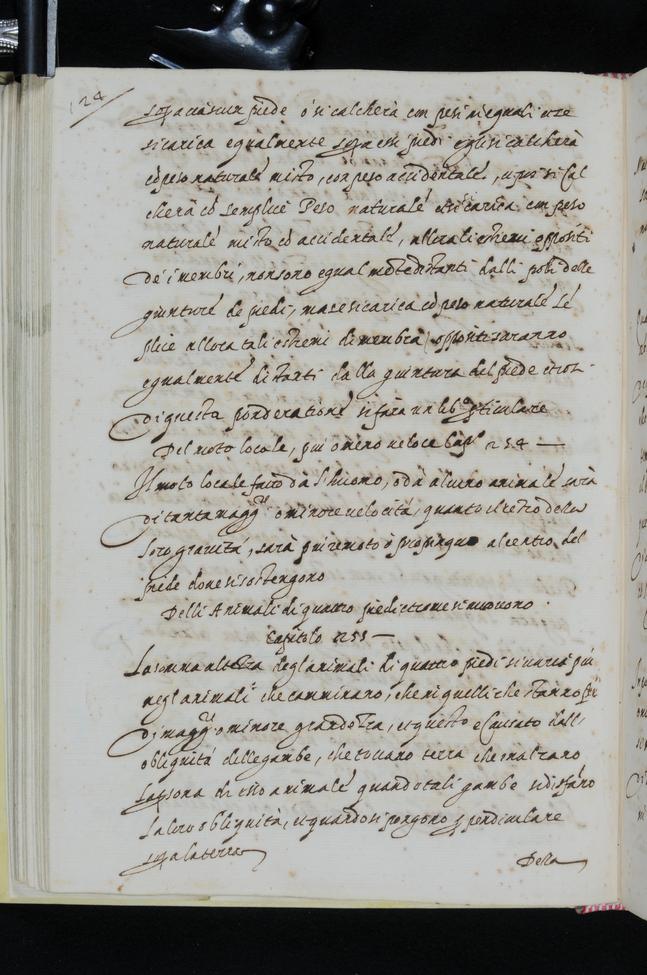 124
sop.a ciascun piede ò si calcherà con pesi ineguali ò se
si carica egualmente sop.a essi piedi egli si calcherà
cõ peso naturale misto, con peso accidentale, ò pur si cal
cherà cõ semplice Peso naturale se si carica con peso
naturale misto cõ accidentale, allora li estremi oppositi
de i membri, non sono egualmẽte distanti dalli poli delle
giunture de piedi, ma se si carica cõ peso naturale sẽ
plice allora tali estremi di membra oppositi saranno
egualmente distanti dalla giuntura del piede
di questa ponderatione si farà un lib.o particulare
Del moto locale, più ò meno veloce Cap.o 254 —
Il moto locale fatto dà l'huomo, ò dà alcuno animale sarà
di tanta magg.re ò minore velocità, quanto il cẽtro della
loro gravità, sarà più remoto ò propinquo al centro del
piede dove si sostengono
Delli Animali di quatro piedi et come si muovono
Capitolo 255 —
La somma altezza degl'animali di quattro piedi si varia più
negl'animali che camminano, che in quelli che stanno
di magg.re ò minore grandezza, et questo è causato dall'
obliquità delle gambe, che toccano terra che inalzano
la p̱sona di esso animale quando tali gambe si disfãno
la loro obliquità, et quando si pongono p̱pendiculare
sop.a la terra
Della